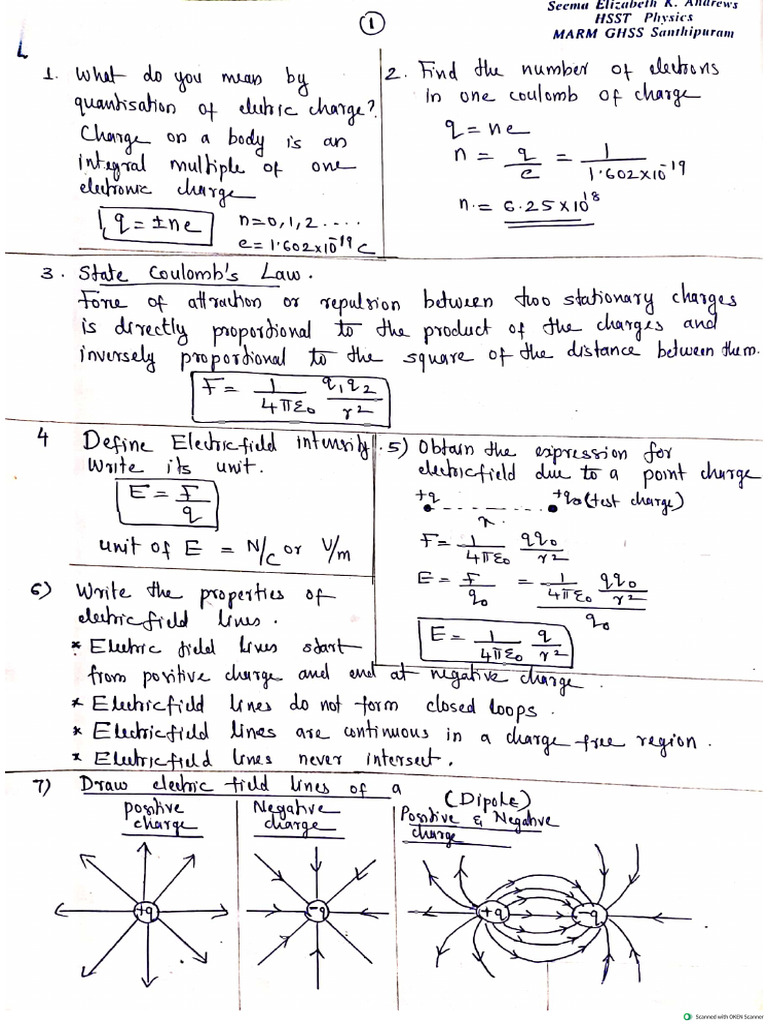 Seema Elizabeth K. Andrews
HSST Physics
MARM GHSS Santhipuram
1
1. What do you mean by
quantisation of electric charge?
Charge on a body is an
integral multiple of one
electronic charge
q = ±ne
n=0,1,2 ....
e = 1.602x10⁻¹⁹ C
2. Find the number of electrons
in one coulomb of charge
q = ne
n = q/e = 1/1.602x10⁻¹⁹
n = 6.25x10¹⁸
3. State Coulomb's Law.
Force of attraction or repulsion between two stationary charges
is directly proportional to the product of the charges and
inversely proportional to the square of the distance between them.
F = 1/4πε₀ q₁q₂/r²
4 Define Electricfield intensity.
Write its unit.
E = F/q
unit of E = N/C or V/m
5) Obtain the expression for
electricfield due to a point charge
+q +q₀(test charge)
r
F = 1/4πε₀ qq₀/r²
E = F/q₀ = 1/4πε₀ qq₀/r² / q₀
E = 1/4πε₀ q/r²
6) Write the properties of
electricfield lines.
* Electric field lines start
from positive charge and end at negative charge.
* Electricfield lines do not form closed loops.
* Electricfield lines are continuous in a charge free region.
* Electricfield lines never intersect.
7) Draw electric field lines of a
positive
charge
+q
Negative
charge
-q
(Dipole)
Positive & Negative
charge
+q -q
Scanned with OKEN Scanner